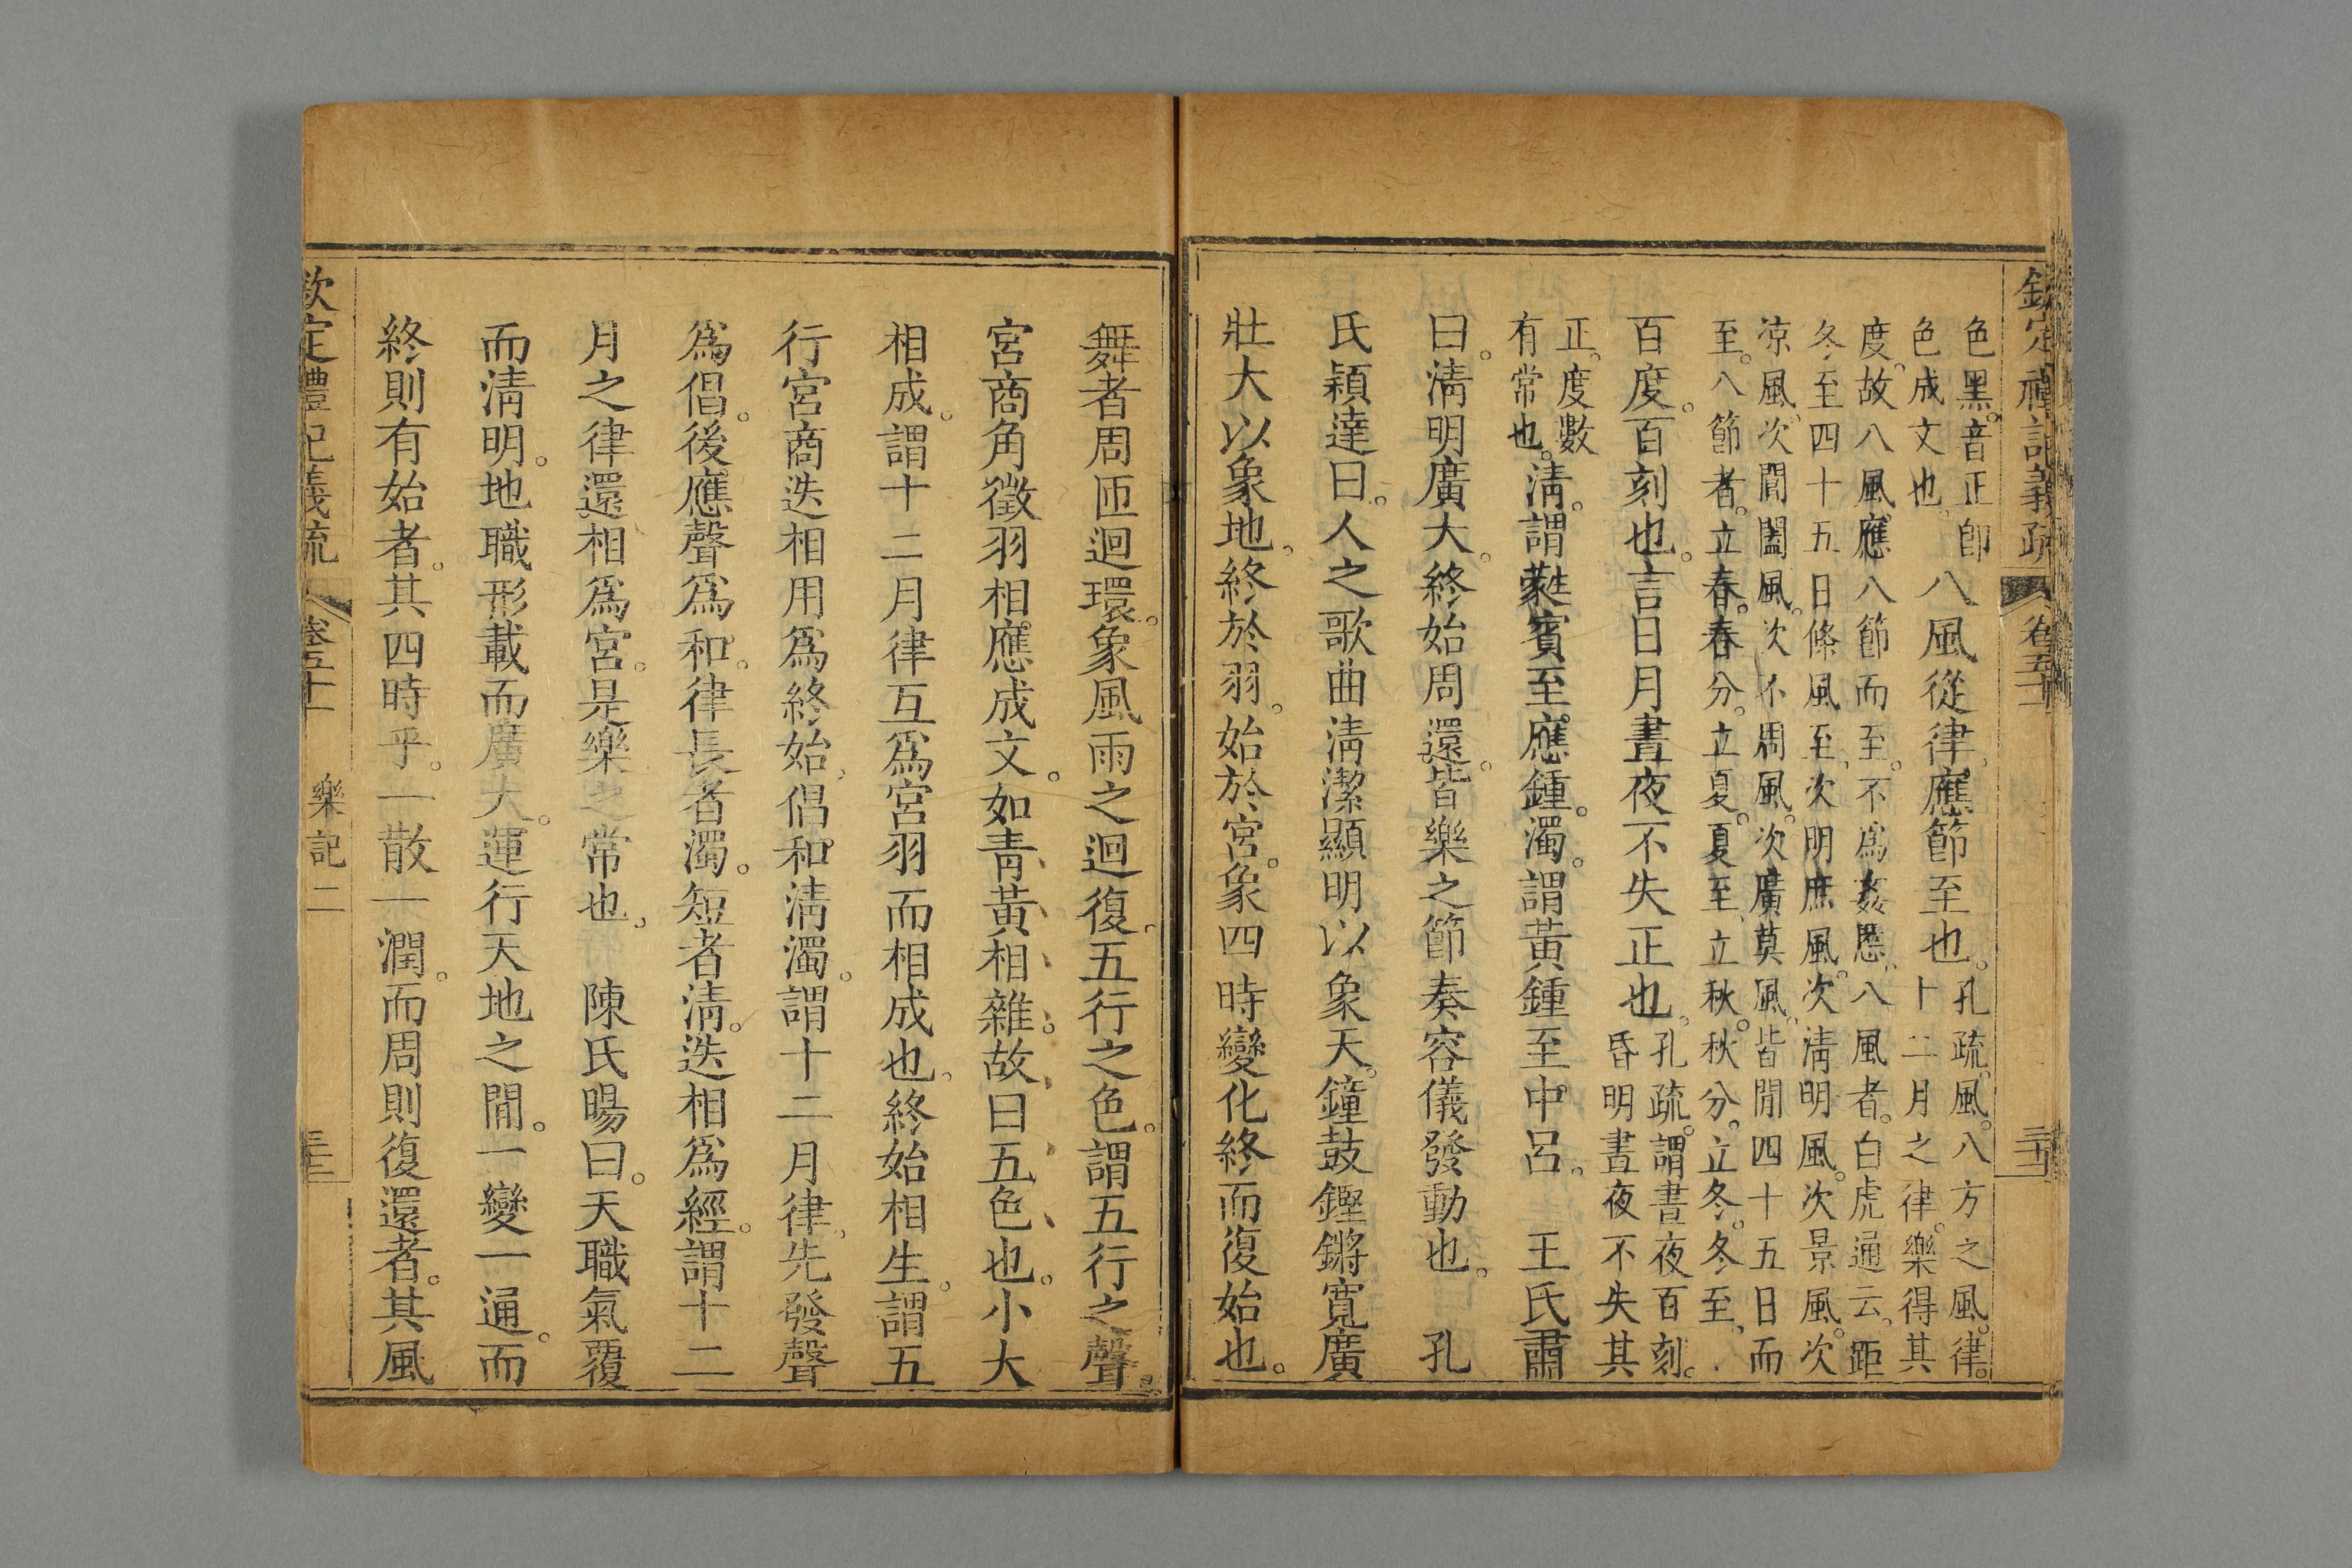 欽定禮記義疏 卷五十一
色黑。音正卽
色成文也。
八風從律應節至也。
孔疏。風。八方之風。律。
十二月之律。樂得其
度。故八風應八節而至。不爲姦慝。八風者。白虎通云。距
冬至四十五日條風至。次明庶風。次淸明風。次景風。次
凉風。次閶闔風。次不周風。次廣莫風。皆閒四十五日而
至。八節者。立春。春分。立夏。夏至。立秋。秋分。立冬。冬至。
百度。百刻也。言日月晝夜不失正也。
孔疏。謂晝夜百刻。
昏明晝夜不失其
正。度數
有常也。
淸。謂蕤賓至應鍾。濁。謂黃鍾至中呂。 王氏肅
曰。淸明廣大。終始周還。皆樂之節奏容儀發動也。 孔
氏穎達曰。人之歌曲淸潔顯明以象天。鐘鼓鏗鏘寬廣
壯大以象地。終於羽。始於宮。象四時變化終而復始也。
舞者周匝迴環。象風雨之迴復。五行之色。謂五行之聲。
宮商角徵羽相應成文。如靑黃相雜。故曰五色也。小大
相成。謂十二月律互爲宮羽而相成也。終始相生。謂五
行宮商迭相用爲終始。倡和淸濁。謂十二月律。先發聲
爲倡。後應聲爲和。律長者濁。短者淸。迭相爲經。謂十二
月之律還相爲宮。是樂之常也。 陳氏暘曰。天職氣覆
而淸明。地職形載而廣大。運行天地之閒。一變一通。而
終則有始者。其四時乎。一散一潤。而周則復還者。其風
欽定禮記義疏 卷五十一 樂記二